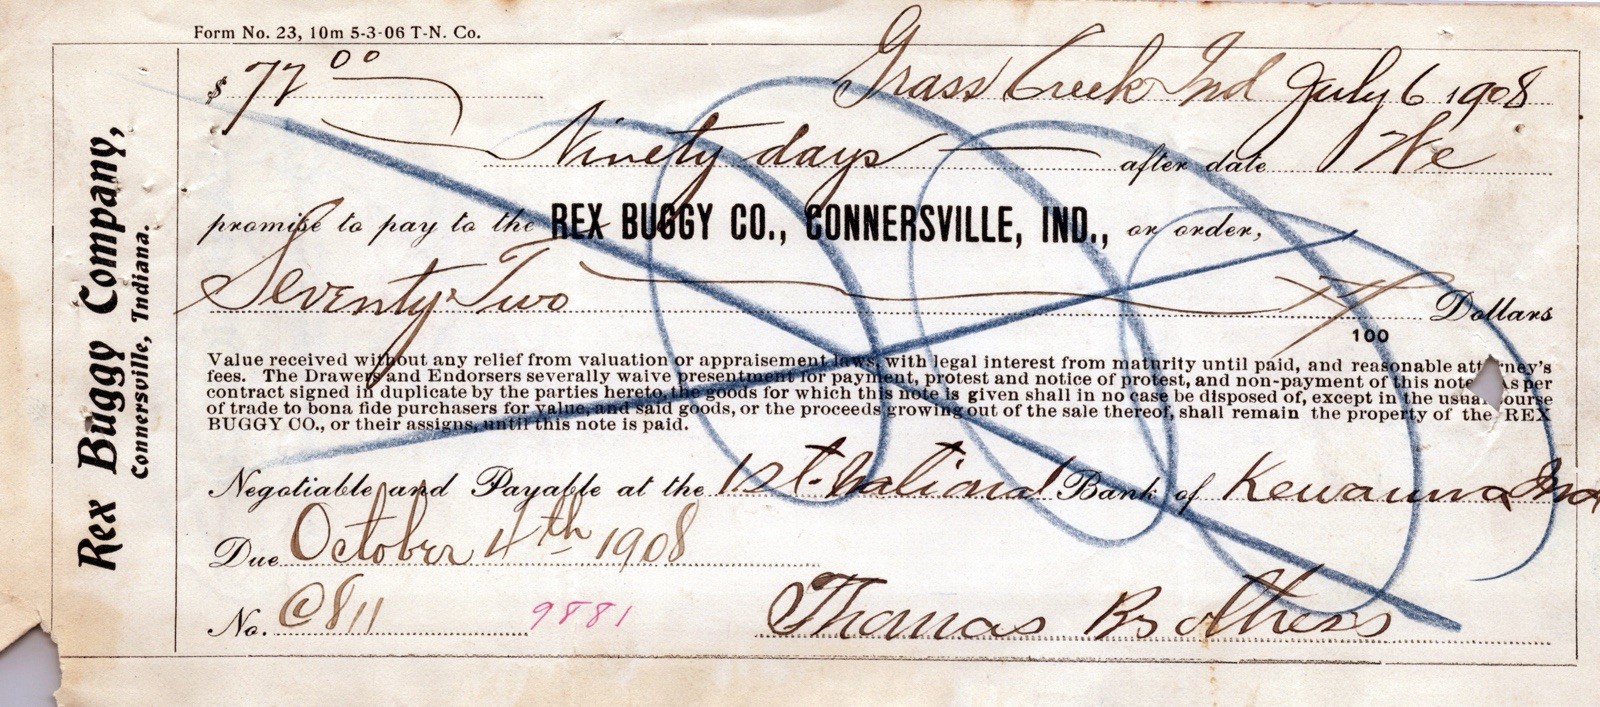 Form No. 23, 10m 5-3-06 T-N. Co.
Rex Buggy Company,
Connersville, Indiana.
$ 72 00 Grass Creek Ind July 6 1908
Ninety days after date We
promise to pay to the REX BUGGY CO., CONNERSVILLE, IND., or order,
Seventy Two 100 Dollars
Value received without any relief from valuation or appraisement laws, with legal interest from maturity until paid, and reasonable attorney's
fees. The Drawers and Endorsers severally waive presentment for payment, protest and notice of protest, and non-payment of this note. As per
contract signed in duplicate by the parties hereto, the goods for which this note is given shall in no case be disposed of, except in the usual course
of trade to bona fide purchasers for value, and said goods, or the proceeds growing out of the sale thereof, shall remain the property of the REX
BUGGY CO., or their assigns, until this note is paid.
Negotiable and Payable at the 1st. National Bank of Kewanna Ind
Due October 4th 1908
No. C811 9881 Thomas Brothers